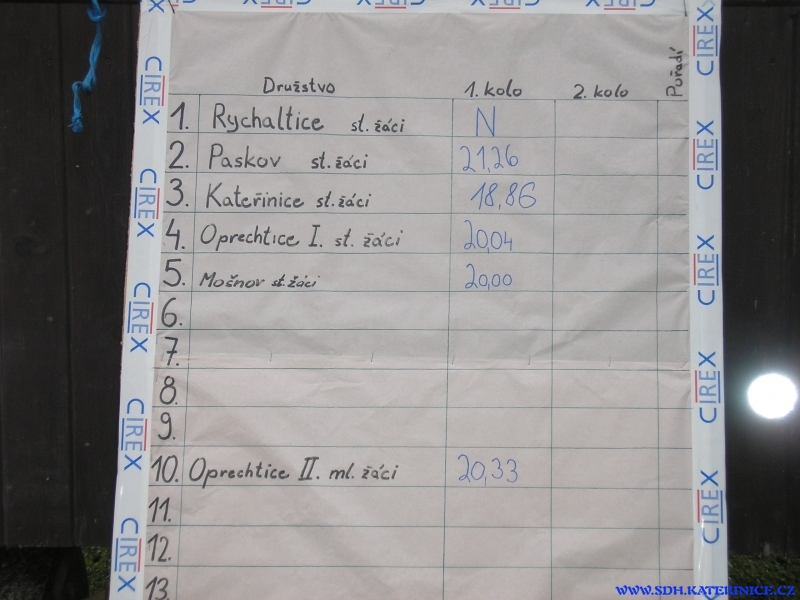 Družstvo 1. kolo 2. kolo Pořadí
1. Rychaltice st. žáci N
2. Paskov st. žáci 21,26
3. Kateřinice st. žáci 18,86
4. Oprechtice I. st. žáci 20,04
5. Mošnov st. žáci 20,00
6.
7.
8.
9.
10. Oprechtice II. ml. žáci 20,33
11.
12.
13.
CIREX
CIREX
CIREX
CIREX
CIREX
CIREX
CIREX
CIREX
CIREX
CIREX
WWW.SDH.KATERINICE.CZ